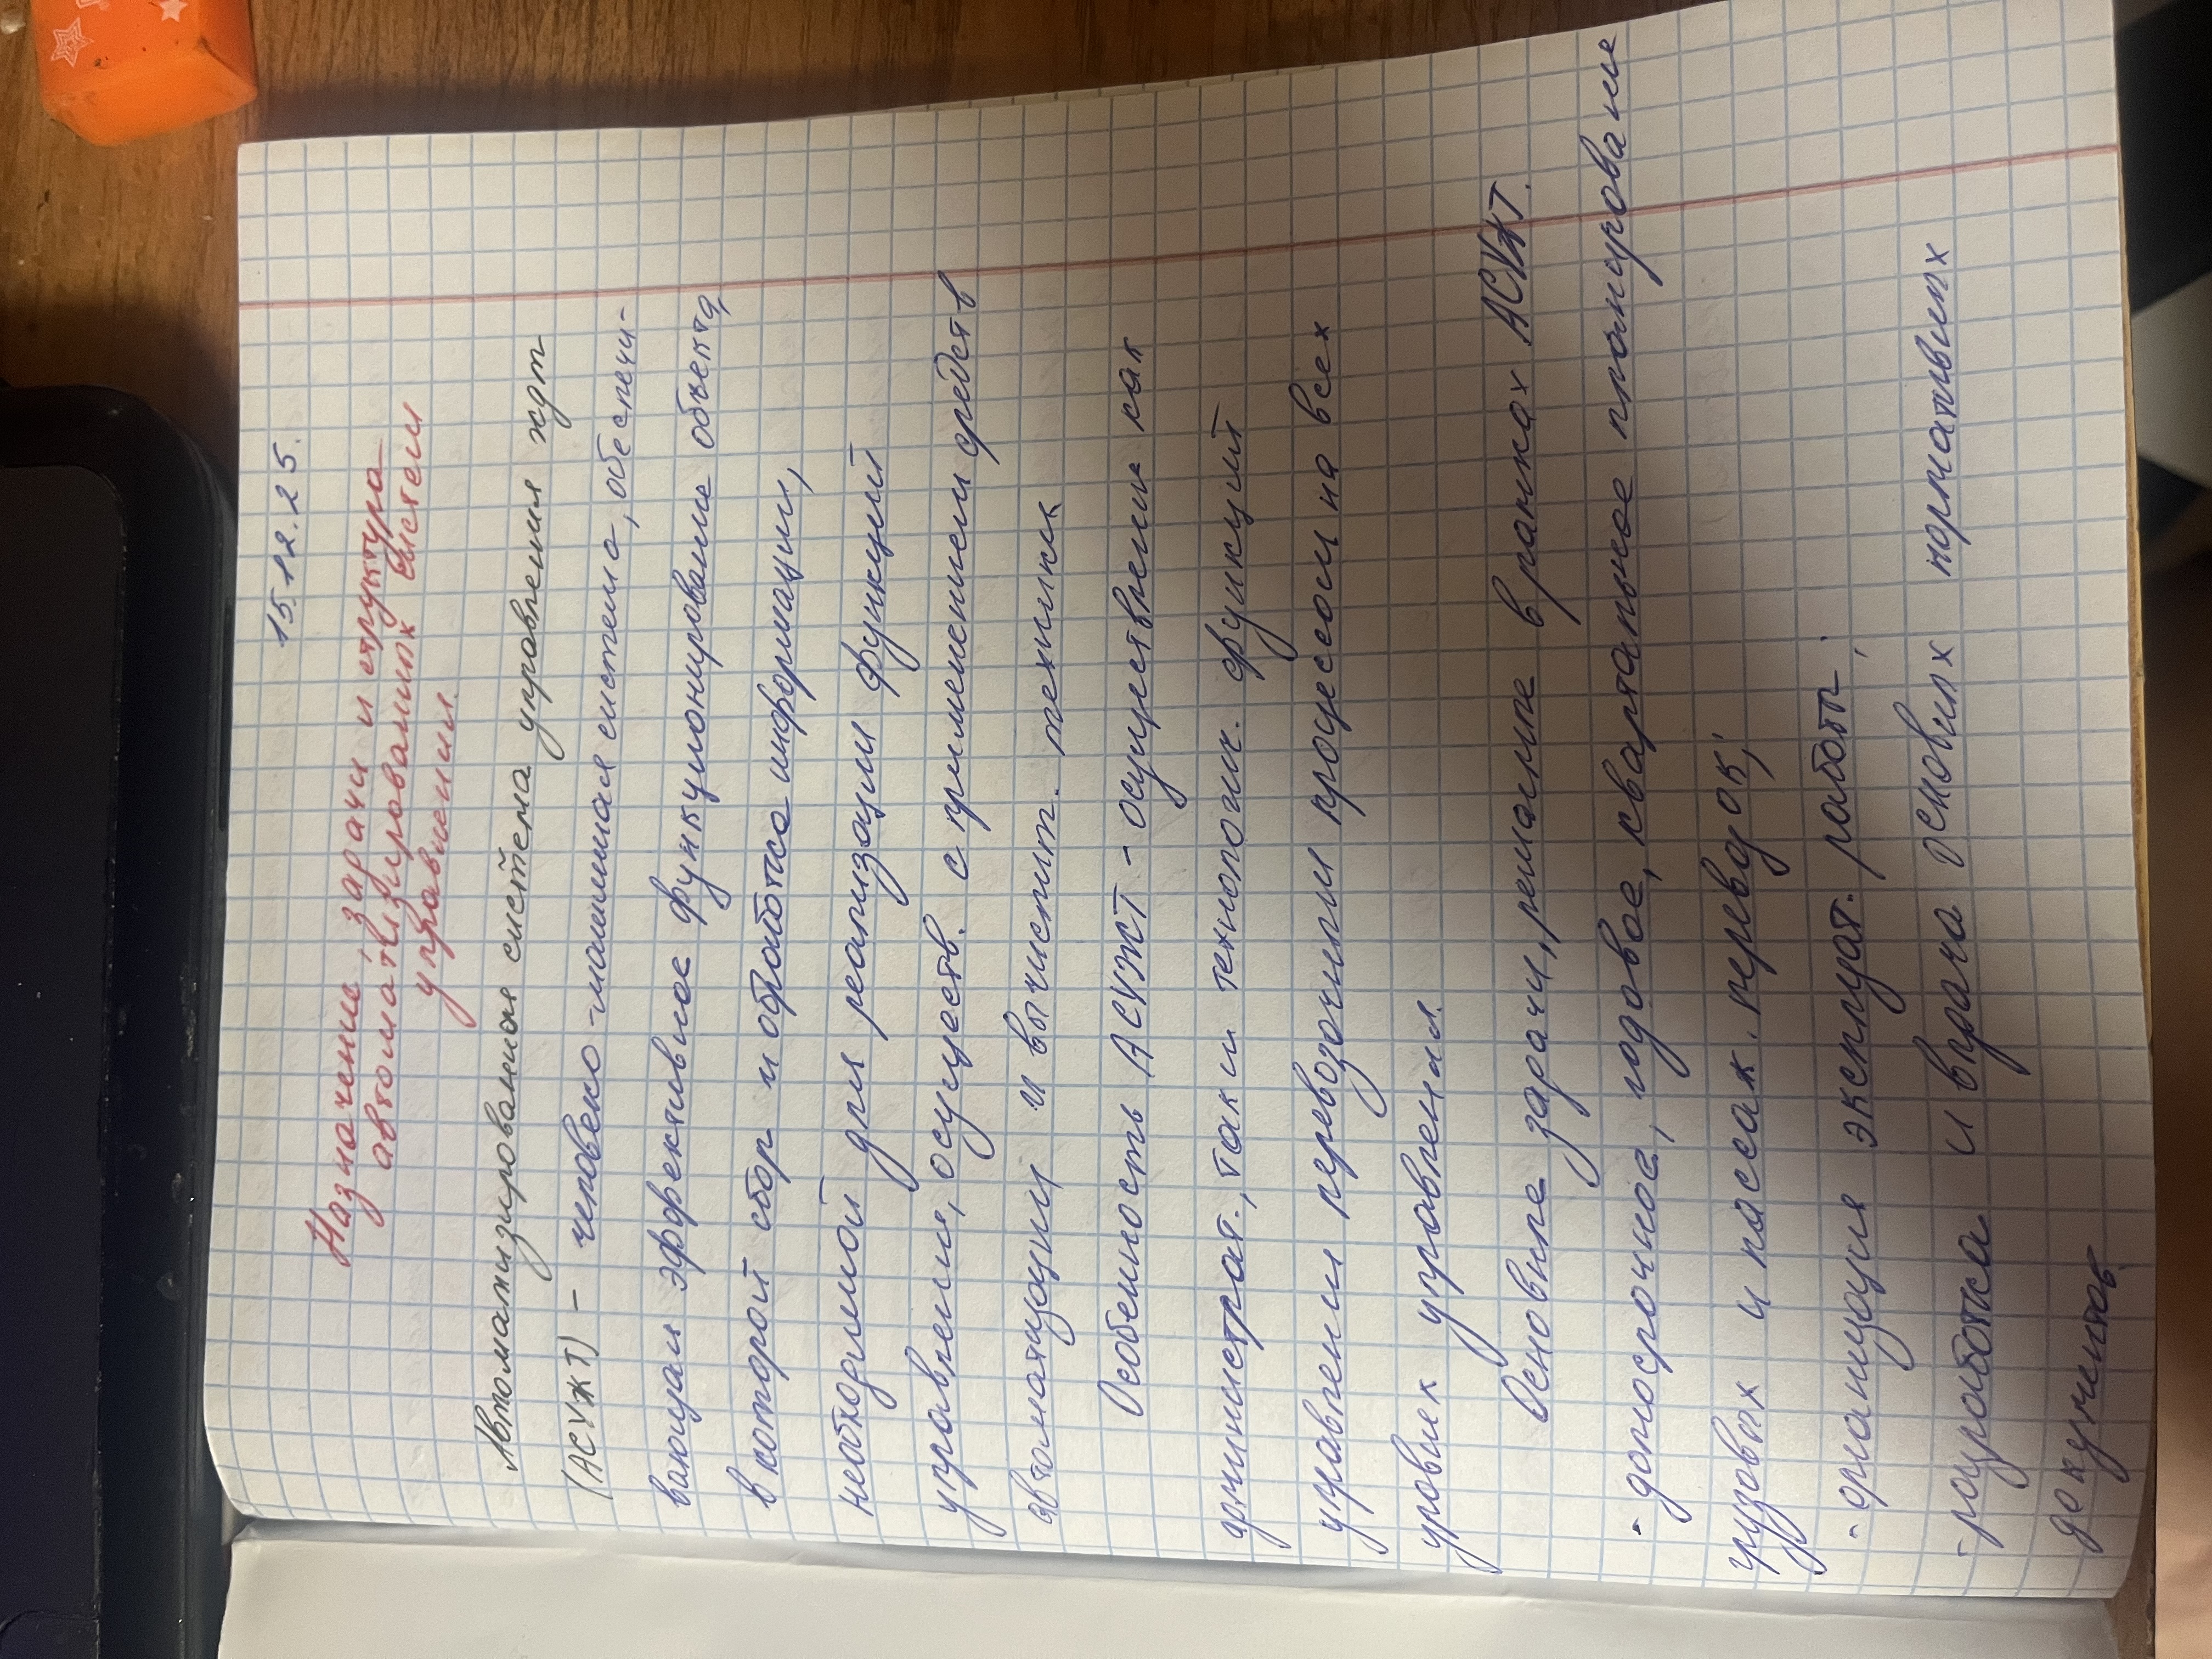 15.12.25.
Назначение, задачи и структура
автоматизированных систем
управления.
Автоматизированная система управления ждт
(АСУЖТ) – человеко-машинная система, обеспечи-
вающая эффективное функционирование объекта,
в которой сбор и обработка информации,
необходимой для реализации функций
управления, осуществ. с применением средств
автоматизации и вычислит. техники
Особенность АСУЖТ - осуществлении как
администрат., так и технологич. функций
управлении перевозочным процессом на всех
уровнях управления.
Основные задачи, решаемые в рамках АСУЖТ.
- долгосрочное, годовое, квартальное планирование
грузовых и пассаж. перевозок;
- организация эксплуат. работы;
- разработка и выдача основных нормативных
документов.